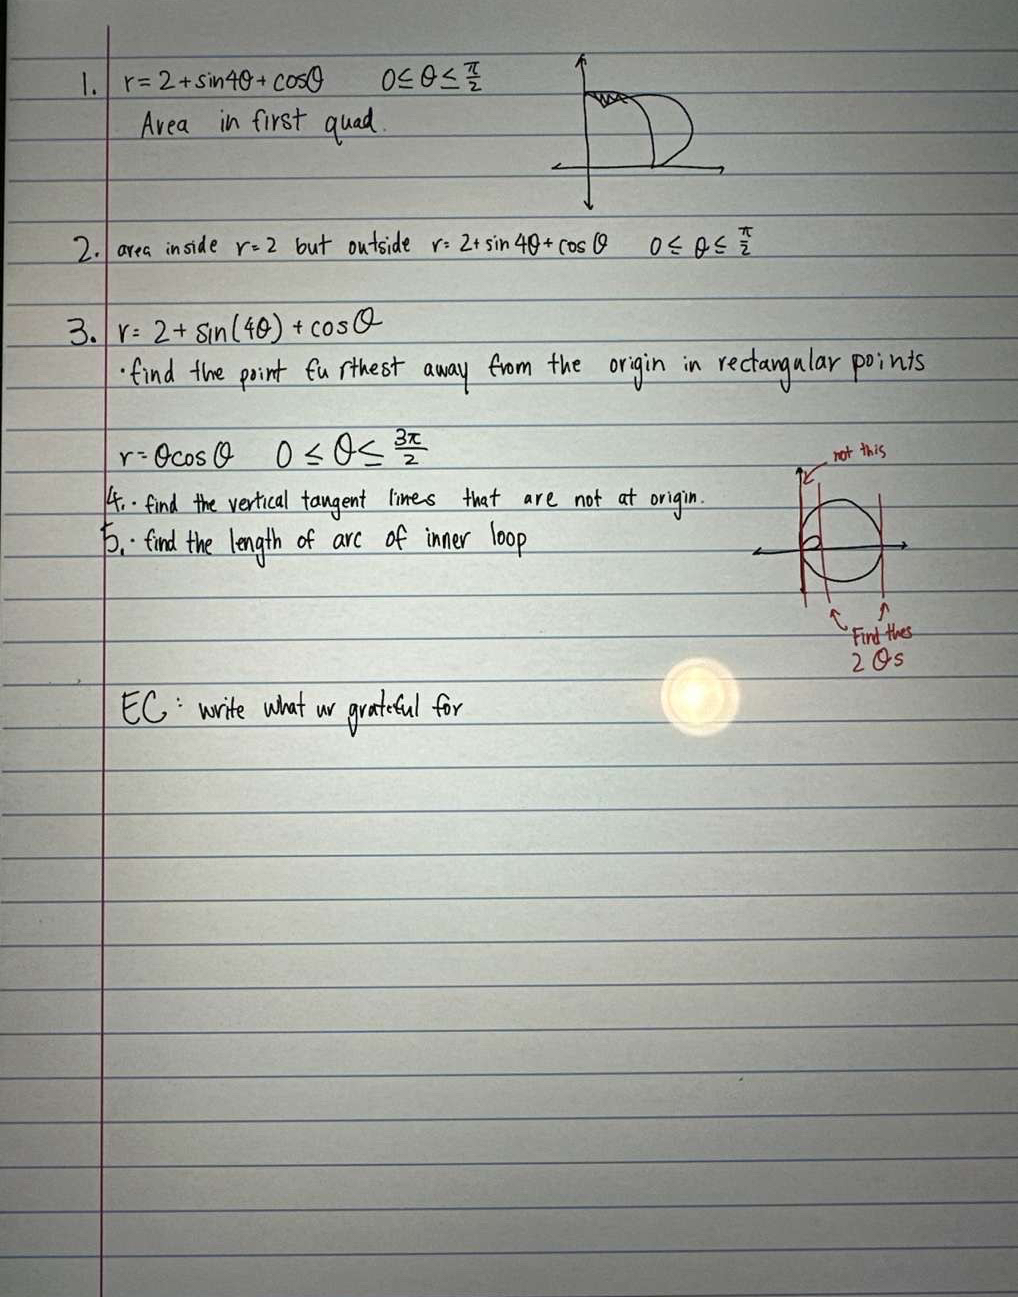 1. r = 2 + sin4θ + cosθ 0 ≤ θ ≤ π/2
Area in first quad.
2. area inside r = 2 but outside r = 2 + sin 4θ + cos θ 0 ≤ θ ≤ π/2
3. r = 2 + sin(4θ) + cos θ
· find the point furthest away from the origin in rectangular points
r = θcos θ 0 ≤ θ ≤ 3π/2
not this
4. · find the vertical tangent lines that are not at origin.
5. · find the length of arc of inner loop
Find thes
2 θs
EC : write what ur grateful for